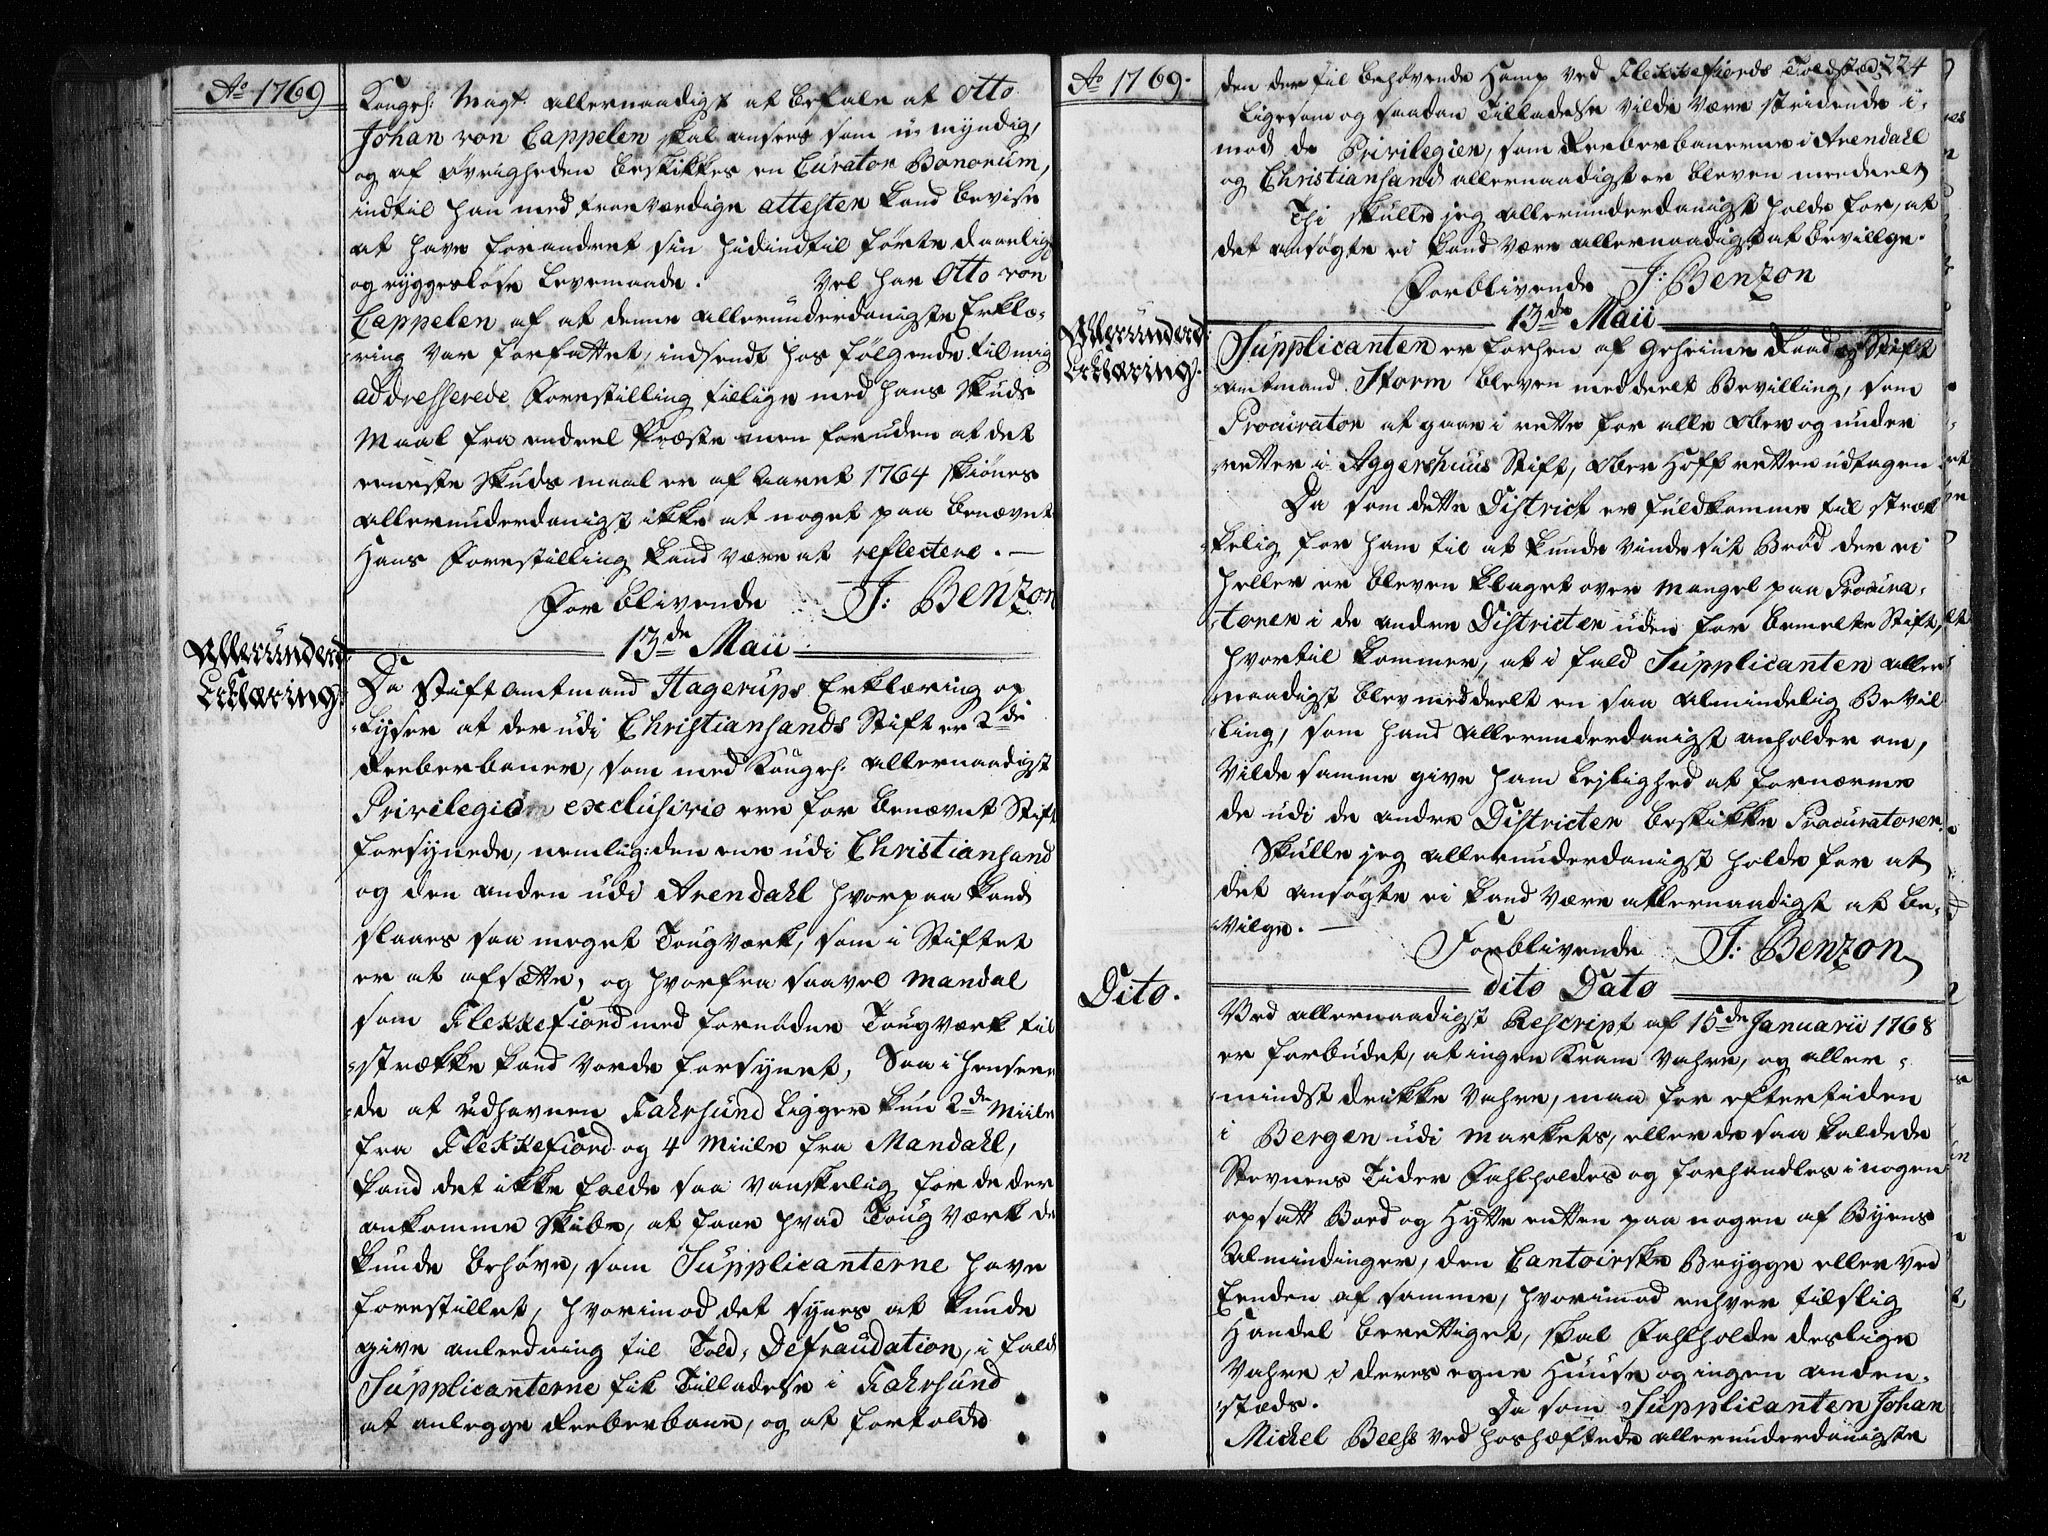 Ao 1769
Kongel: Magt. allernaadigst at befale at Otto
Johan von Cappelen skal ansees som u-myndig,
og af øvrigheden beskikkes en Curator Bonorum,
indtil han med troeværdige attester kand bevise
at have forandret sin hidindtil førte daarlige
og ryggesløse Levemaade. Vel har Otto von
Cappelen af at denne allerunderdanigste Erklæ-
ring var forfattet, indsendt hos følgende til mig
addresserede Forestilling tillige med hans Skuds
Maal fra endeel Præster men foruden at det
eeneste Skudsmaal er af Aaret 1764 skiønes
allerunderdanigst ikke at noget paa benævnte
Hans Forestilling kand være at reflectere. —
Forblivende J: Benzon
13de Maii
Allerunderd:
Erklæring:
Da Stiftamtmand Hagerups Erklæring op
lyser at der udi Christiansands Stift er 2de
Reeberbaner, som med Kongel: allernaadigst
Privilegio exclusivio ere for benævnte Stift
forsynede, nemlig: den ene udi Christiansand
og den anden udi Arendahl hvorpaa kand
slaaes saa meget Tougværk, som i Stiftet
er at afsætte, og hvorfra saavel Mandal
som Flekkefiord med fornøden Tougværk til
strække kand vorde forsynet, Saa i henseen
de at Udhavnen Fahrsund ligger kun 2de Miile
fra Flekkefiord og 4 Miile fra Mandahl,
kand det ikke falde saa vanskelig for de der
ankomme Skibe, at faae hvad Tougværk de
kunde behøve, som Supplicanterne have
forestillet, hvorimod det synes at kunde
give anleedning til Told-Defraudation, i fald
Supplicanterne fik Tilladelse i Fahrsund
at anlegge Reeberbane, og at fortolde
Ao 1769.
224
den der til behøvende Hamp ved Flekkefiords Toldsted,
Ligesom og saadan Tilladelse vilde være stridende i-
mod de Privilegier, som Reeberbanerne i Arendahl
og Christiansand allernaadigst er bleven meedeelt
Thi skulle jeg allerunderdanigst holde for, at
det ansøgte ei kand være allernaadigst at bevillge.
Forblivende J: Benzon
13de Maii
Allerunderd:
Erklæring:
Supplicanten er forhen af Geheime Raad og Stift
amtmand Storm bleven meddeelt Bevilling, som
Procurator at gaae i rette for alle Over og under
retter i Aggershuus Stift, Ober Hoff retten udtagen
Da som dette District er fuldkomme til stræk
kelig for ham til at kunde vinde sit Brød der ei
heller er bleven klaget over mangel paa Procura-
torer i de andre Districter uden for bemelte Stift,
hvortil kommer, at i fald Supplicanten aller
naadigst blev meddeelt en saa almindelig Bevil
ling, som hand allerunderdanigst anholder om,
vilde samme give ham leylighed at fornærme
de udi de andre Districter beskikke Procuratorer
Skulle jeg allerunderdanigst holde for at
det ansøgte ei kand være allernaadigst at be-
vilge. —
Forblivende J: Benzon
dito Dato
Dito.
Ved allernaadigst Rescript af 15de Januarii 1768
er forbudet, at ingen Kram Vahre, og aller-
mindst drikke Vahre, maa for eftertiden
i Bergen udi Markets, eller de saa kaldede
Stevnens Tider Fahlholdes og forhandles i nogen
opsatt Bord og Hytte enten paa nogen af Byens
Almindinger, den Cantoirske Brygge eller ved
Eenden af samme, hvorimod enhver til slig
Handel berettiget, skal Fahlholde deslige
Vahre i deres egne Huuse og ingen anden-
stæds. Da som Supplicanten Johan
Michel Beehs ved hoshæftede allerunderdanigste